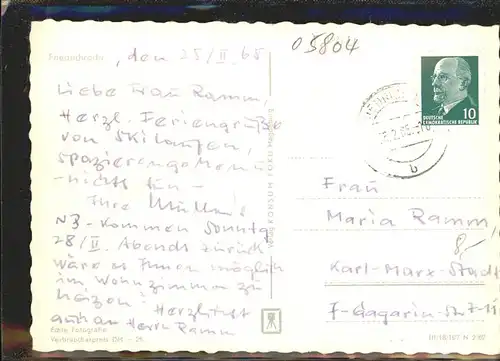 05804
, den 25/II 65
Liebe Frau Ramm,
Herzl. Feriengrüße
von Skilaufen,
spazierengehen u.
-nichts tun-
Ihre Müller's
NB- Kommen Sonntag
28/II. Abends zurück
wäre es Ihnen möglich
im Wohnzimmer zu
heizen? Herzlichst
auch an Herrn Ramm
Echte Fotografie
Verbraucherpreis DM -,25
KONSUM
10
DEUTSCHE
DEMOKRATISCHE REPUBLIK
b
Frau
Maria Ramm
8,-
Karl-Marx-Stadt
J-Gagarin-Str 7